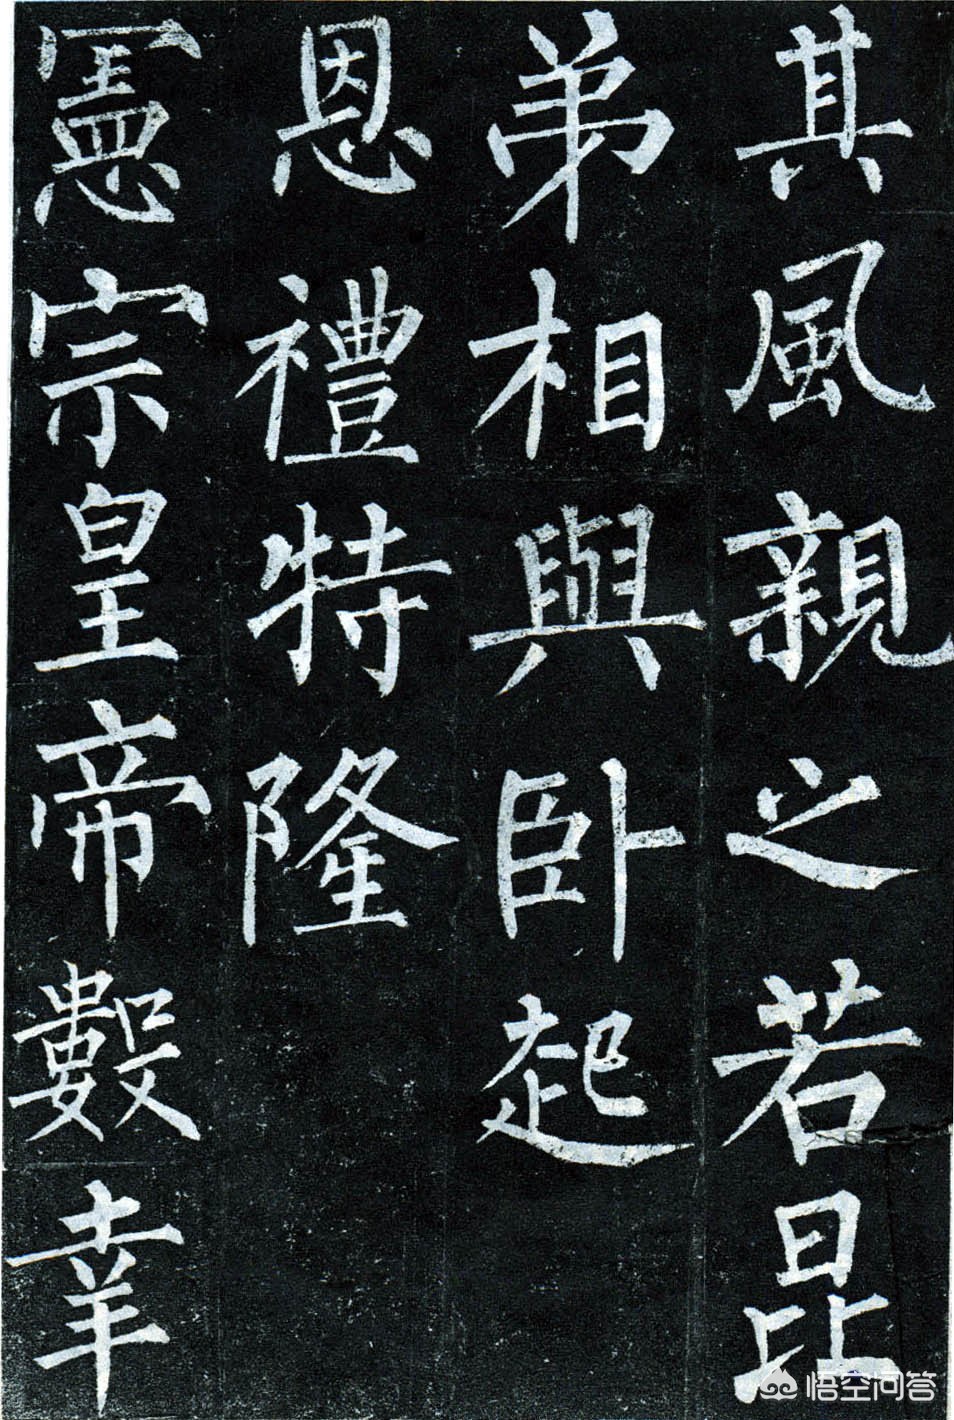 其風親之若昆
弟相與卧起
恩禮特隆
憲宗皇帝數幸
悟空问答